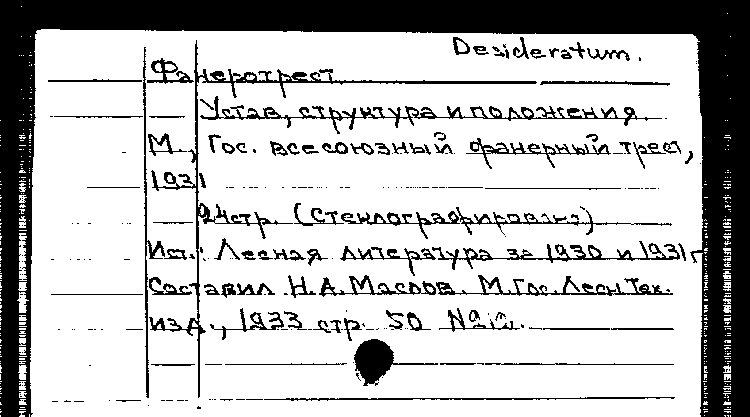 Desideratum.
Фанеротрест
Устав, структура и положения.
М., Гос. всесоюзный фанерный трест,
1931
24 стр. (Стеклографировано)
Ист.: Лесная литература за 1930 и 1931 г
Составил Н.А. Маслов. М. Гос. Лесн. Тех.
изд., 1933 стр. 50 №